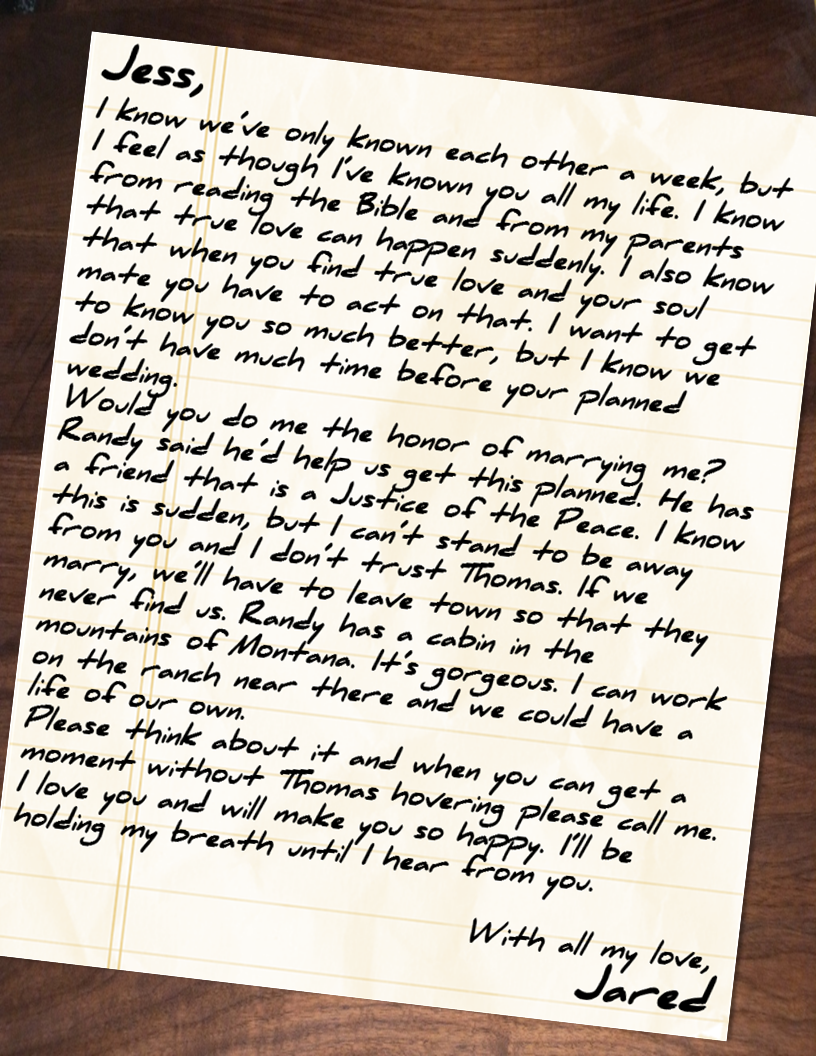 Jess,
I know we've only known each other a week, but
I feel as though I've known you all my life. I know
from reading the Bible and from my parents
that true love can happen suddenly. I also know
that when you find true love and your soul
mate you have to act on that. I want to get
to know you so much better, but I know we
don't have much time before your planned
wedding.
Would you do me the honor of marrying me?
Randy said he'd help us get this planned. He has
a friend that is a Justice of the Peace. I know
this is sudden, but I can't stand to be away
from you and I don't trust Thomas. If we
marry, we'll have to leave town so that they
never find us. Randy has a cabin in the
mountains of Montana. It's gorgeous. I can work
on the ranch near there and we could have a
life of our own.
Please think about it and when you can get a
moment without Thomas hovering please call me.
I love you and will make you so happy. I'll be
holding my breath until I hear from you.
With all my love,
Jared